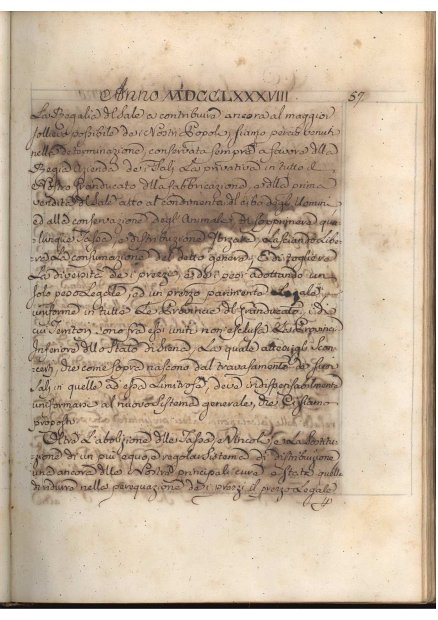 Anno MDCCLXXXVIII. 57
La Regalia del Sale a contribuire ancora al maggior
sollievo possibile de i Nostri Popoli, siamo perciò venuti
nella determinazione, conservata sempre a favore della
Regia Azienda de i Sali la privativa in tutto il
Nostro Granducato della fabbricazione, e della prima
vendita del Sale atto al condimento del cibo degli Uomini
ed alla conservazione degli Animali di sopprimere qua-
lunque Tassa, e distribuzione forzata, lasciando libe-
ra la consumazione del detto genere, e di togliere
la diversità de i prezzi, e de i pesi adottando un
solo peso Legale, ed un prezzo parimente Legale,
uniforme in tutte le Provincie del Granducato, i di
cui Territori sono fra essi uniti non esclusa la Provincia
Inferiore dello Stato di Siena, la quale attesi gli Scon-
certi, che come sopra nascono dal travasamento de i
Sali in quelle ad essa Limitrofe, deve indispensabilmente
uniformarsi al nuovo Sistema generale, che Ci siamo
proposti.
Oltre l'abolizione delle Tasse, e Vincoli, e la Sostitu-
zione di un più equo, e regolar Sistema di distribuzione
una ancora delle Nostre principali cure è stata quella
di ridurre nella perequazione de i prezzi il prezzo Legale